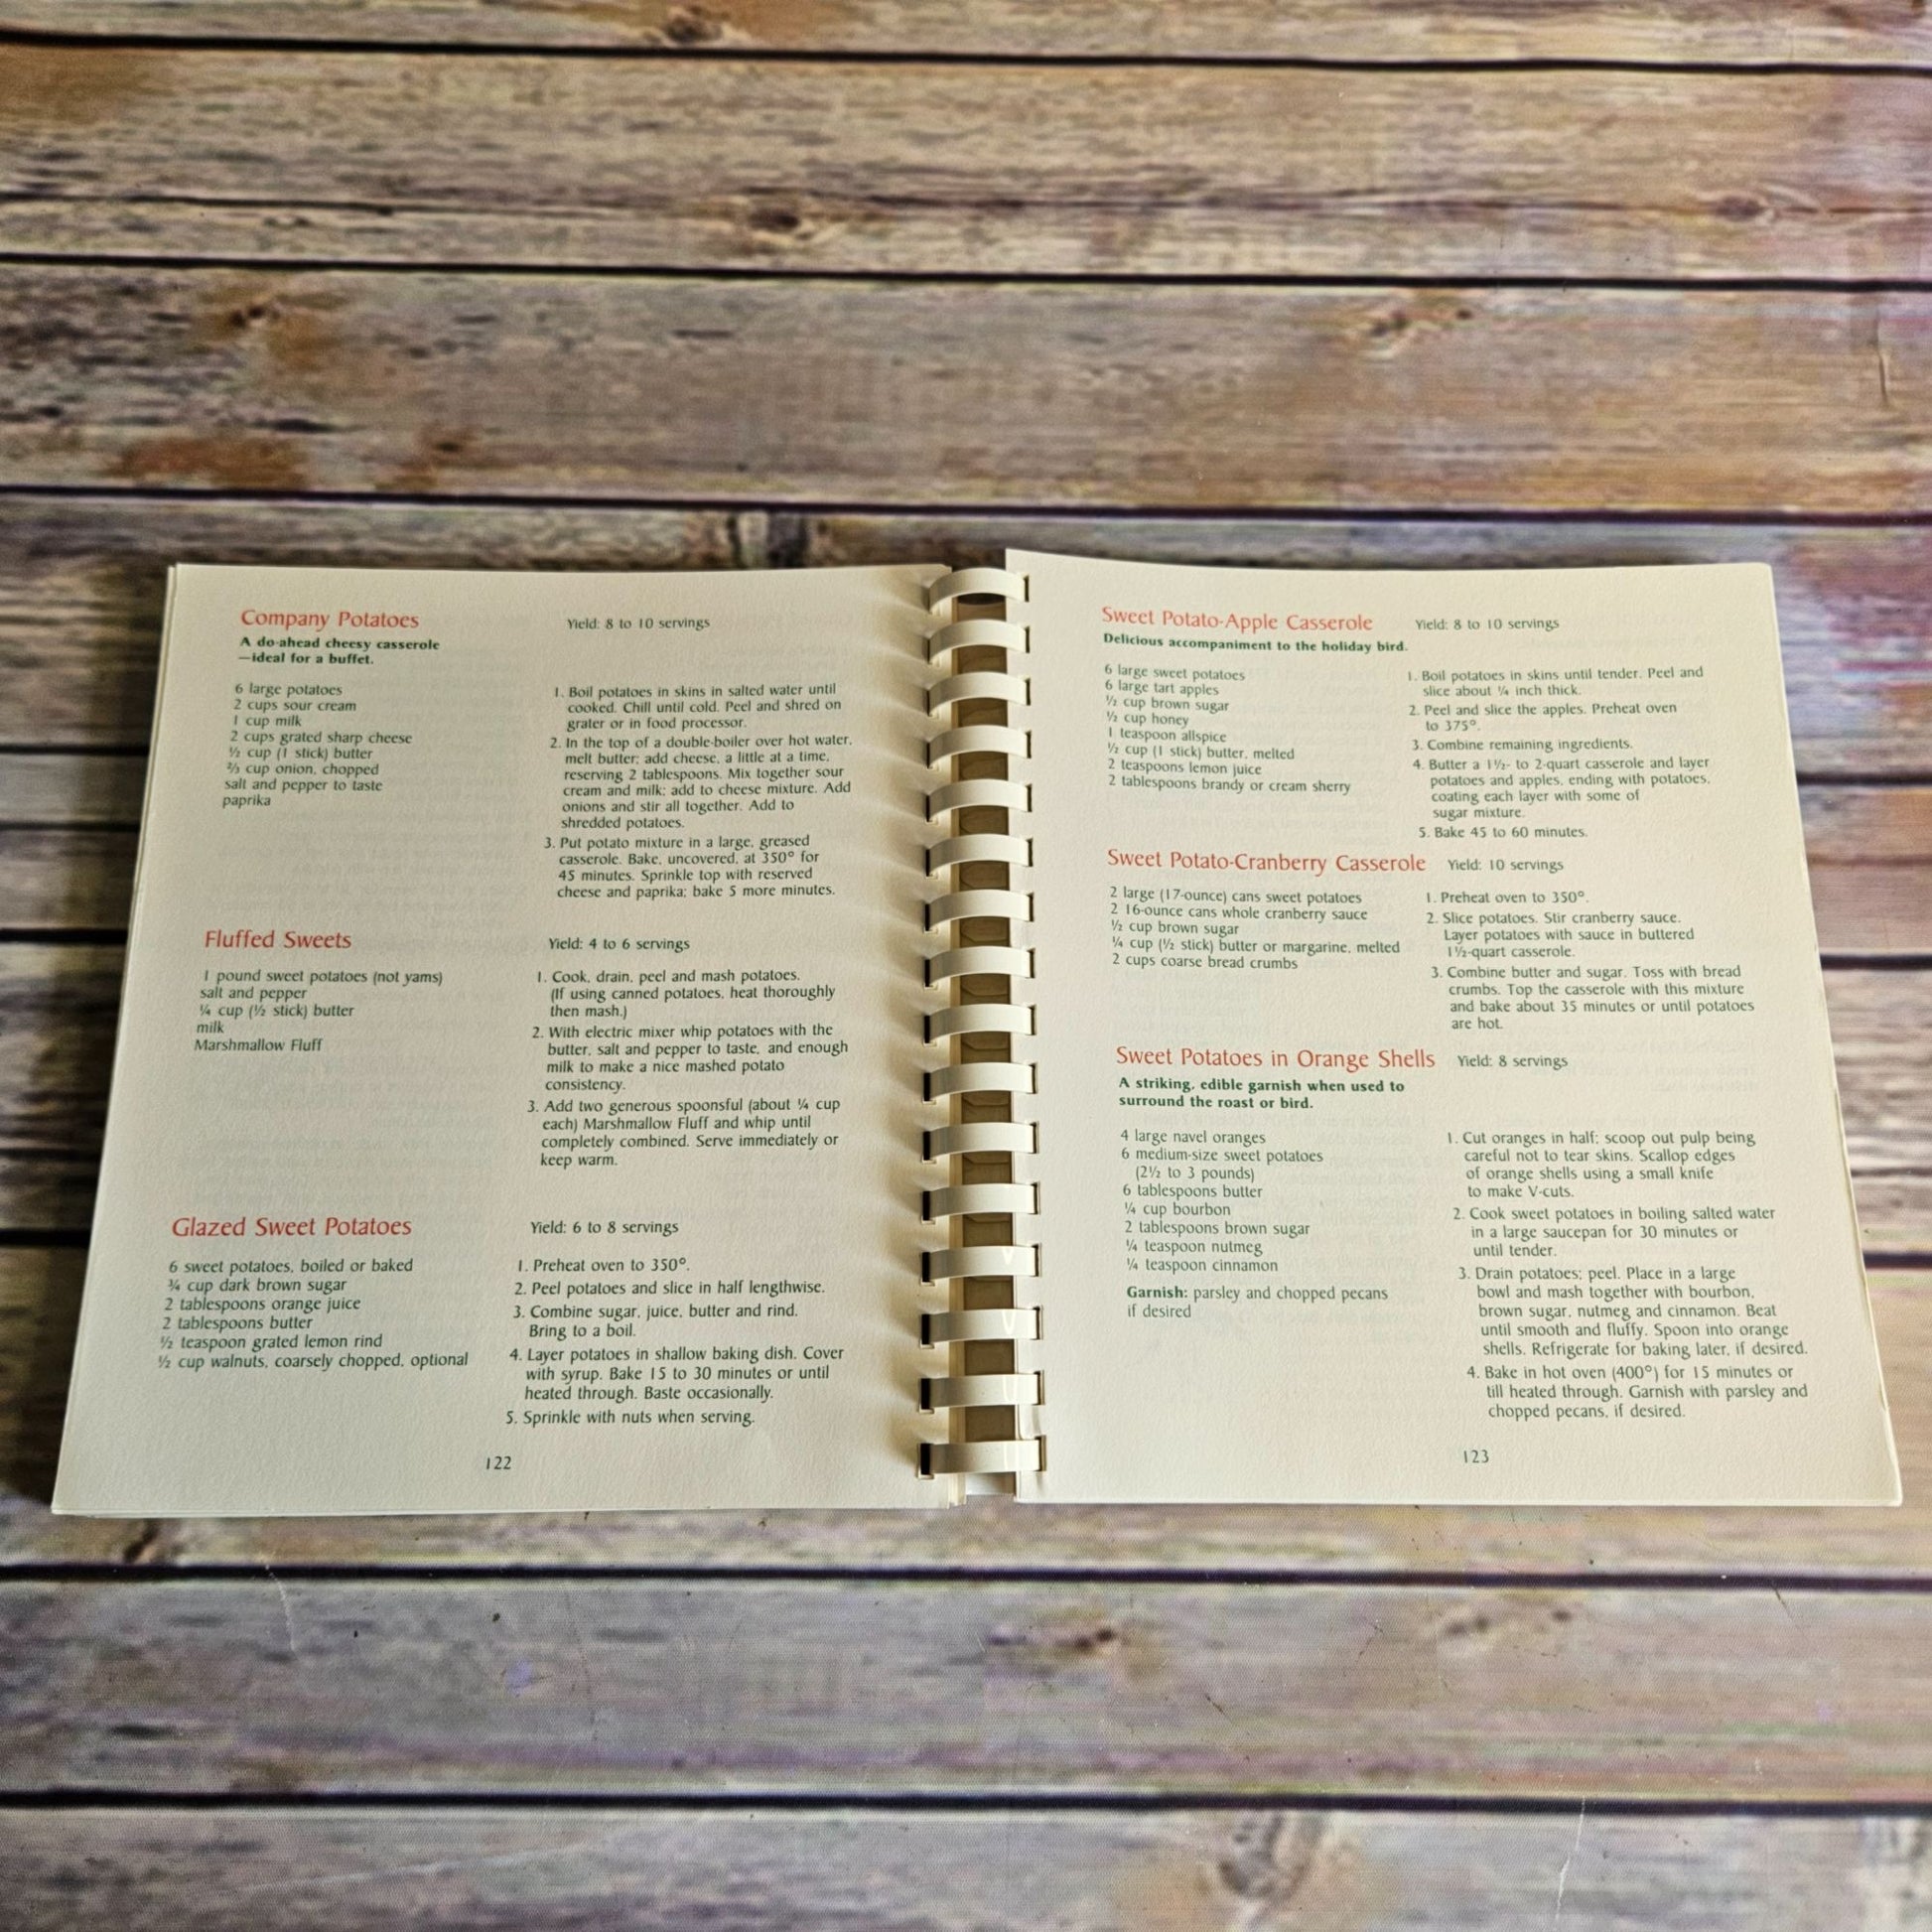 Company Potatoes
Yield: 8 to 10 servings
A do-ahead cheesy casserole
—ideal for a buffet.
6 large potatoes
2 cups sour cream
1 cup milk
2 cups grated sharp cheese
½ cup (1 stick) butter
⅔ cup onion, chopped
salt and pepper to taste
paprika
1. Boil potatoes in skins in salted water until
cooked. Chill until cold. Peel and shred on
grater or in food processor.
2. In the top of a double-boiler over hot water,
melt butter; add cheese, a little at a time,
reserving 2 tablespoons. Mix together sour
cream and milk; add to cheese mixture. Add
onions and stir all together. Add to
shredded potatoes.
3. Put potato mixture in a large, greased
casserole. Bake, uncovered, at 350° for
45 minutes. Sprinkle top with reserved
cheese and paprika; bake 5 more minutes.
Fluffed Sweets
Yield: 4 to 6 servings
1 pound sweet potatoes (not yams)
salt and pepper
¼ cup (½ stick) butter
milk
Marshmallow Fluff
1. Cook, drain, peel and mash potatoes.
(If using canned potatoes, heat thoroughly
then mash.)
2. With electric mixer whip potatoes with the
butter, salt and pepper to taste, and enough
milk to make a nice mashed potato
consistency.
3. Add two generous spoonsful (about ¼ cup
each) Marshmallow Fluff and whip until
completely combined. Serve immediately or
keep warm.
Glazed Sweet Potatoes
Yield: 6 to 8 servings
6 sweet potatoes, boiled or baked
¾ cup dark brown sugar
2 tablespoons orange juice
2 tablespoons butter
½ teaspoon grated lemon rind
½ cup walnuts, coarsely chopped, optional
1. Preheat oven to 350°.
2. Peel potatoes and slice in half lengthwise.
3. Combine sugar, juice, butter and rind.
Bring to a boil.
4. Layer potatoes in shallow baking dish. Cover
with syrup. Bake 15 to 30 minutes or until
heated through. Baste occasionally.
5. Sprinkle with nuts when serving.
122
Sweet Potato-Apple Casserole
Yield: 8 to 10 servings
Delicious accompaniment to the holiday bird.
6 large sweet potatoes
6 large tart apples
½ cup brown sugar
½ cup honey
1 teaspoon allspice
½ cup (1 stick) butter, melted
2 teaspoons lemon juice
2 tablespoons brandy or cream sherry
1. Boil potatoes in skins until tender. Peel and
slice about ¼ inch thick.
2. Peel and slice the apples. Preheat oven
to 375°.
3. Combine remaining ingredients.
4. Butter a 1½- to 2-quart casserole and layer
potatoes and apples, ending with potatoes,
coating each layer with some of
sugar mixture.
5. Bake 45 to 60 minutes.
Sweet Potato-Cranberry Casserole
Yield: 10 servings
2 large (17-ounce) cans sweet potatoes
2 16-ounce cans whole cranberry sauce
½ cup brown sugar
¼ cup (½ stick) butter or margarine, melted
2 cups coarse bread crumbs
1. Preheat oven to 350°.
2. Slice potatoes. Stir cranberry sauce.
Layer potatoes with sauce in buttered
1½-quart casserole.
3. Combine butter and sugar. Toss with bread
crumbs. Top the casserole with this mixture
and bake about 35 minutes or until potatoes
are hot.
Sweet Potatoes in Orange Shells
Yield: 8 servings
A striking, edible garnish when used to
surround the roast or bird.
4 large navel oranges
6 medium-size sweet potatoes
(2½ to 3 pounds)
6 tablespoons butter
¼ cup bourbon
2 tablespoons brown sugar
¼ teaspoon nutmeg
¼ teaspoon cinnamon
Garnish: parsley and chopped pecans
if desired
1. Cut oranges in half; scoop out pulp being
careful not to tear skins. Scallop edges
of orange shells using a small knife
to make V-cuts.
2. Cook sweet potatoes in boiling salted water
in a large saucepan for 30 minutes or
until tender.
3. Drain potatoes; peel. Place in a large
bowl and mash together with bourbon,
brown sugar, nutmeg and cinnamon. Beat
until smooth and fluffy. Spoon into orange
shells. Refrigerate for baking later, if desired.
4. Bake in hot oven (400°) for 15 minutes or
till heated through. Garnish with parsley and
chopped pecans, if desired.
123